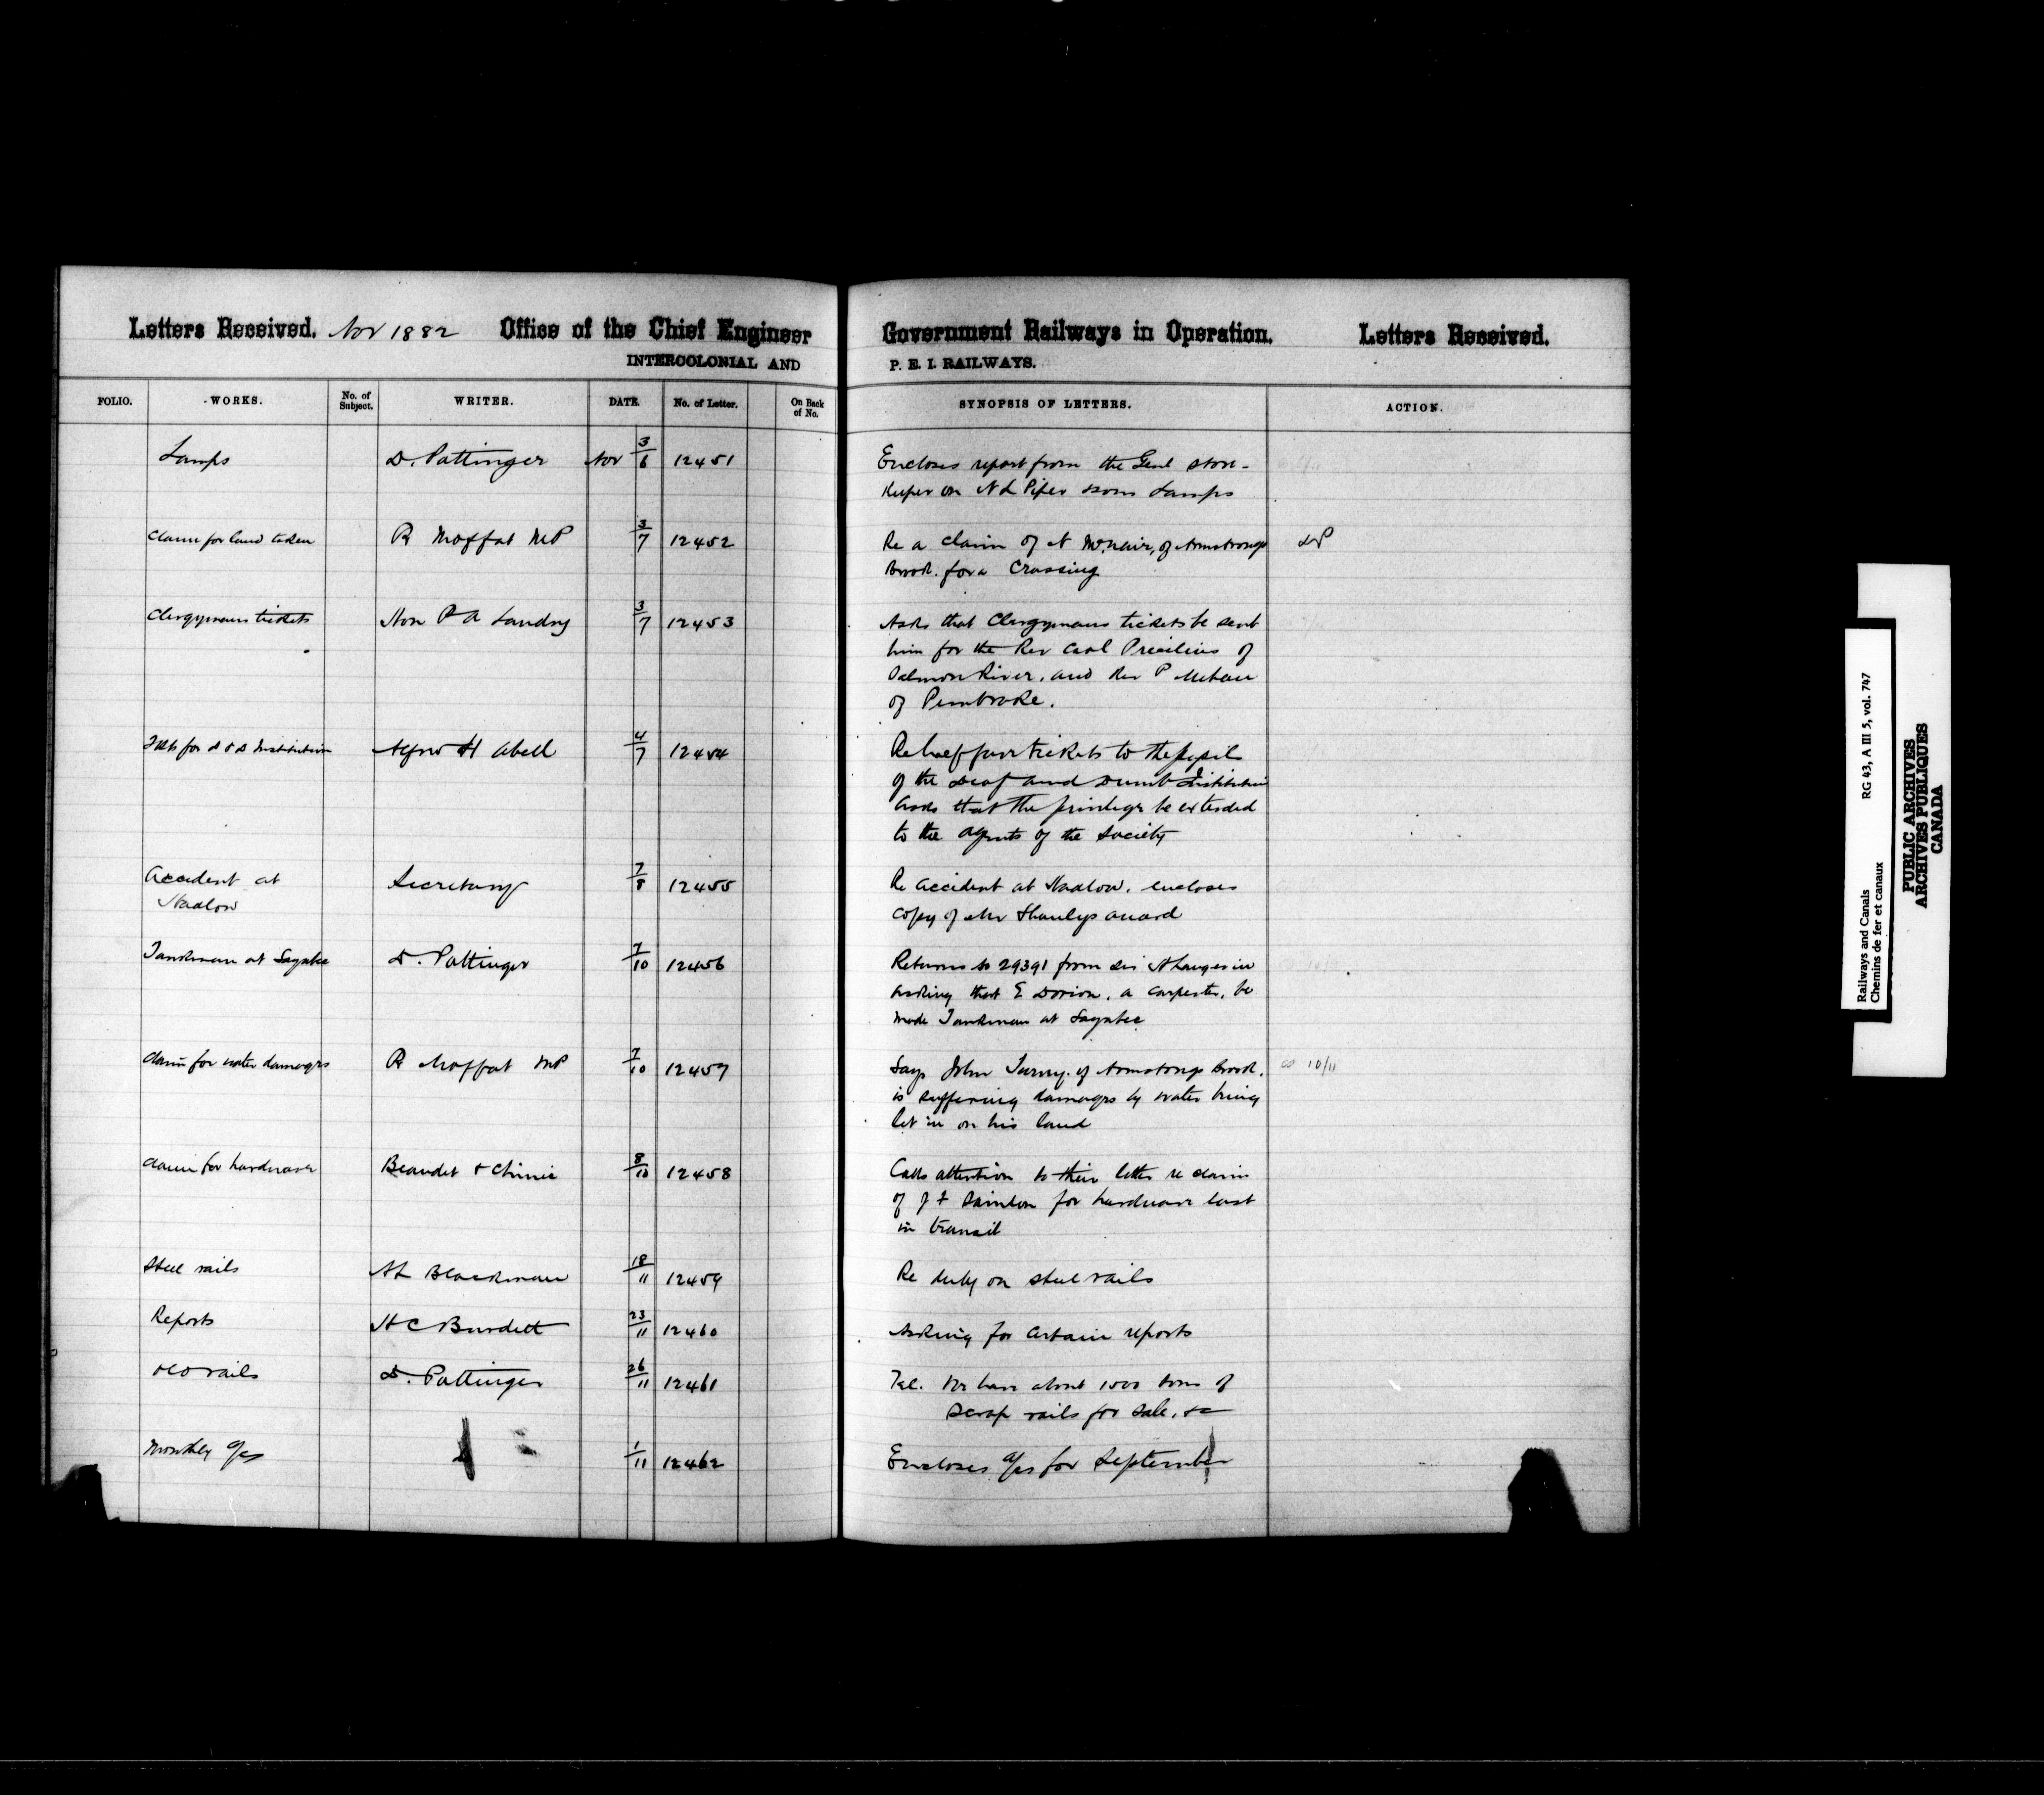 Letters Received. Nov 1882 Office of the Chief Engineer Government Railways in Operation. Letters Received.
INTERCOLONIAL AND P. E. I. RAILWAYS.
FOLIO. WORKS. No. of Subject. WRITER. DATE. No. of Letter. On Back of No. SYNOPSIS OF LETTERS. ACTION.
Lamps D. Pottinger Nov 3/6 12451 Encloses report from the Genl store-
keeper on N L Piper sons Lamps
Claim for land taken R Moffat MP 3/7 12452 Re a claim of N McNair, of Armstrongs DP
Brook. for a Crossing
Clergymans tickets Hon P A Landry 3/7 12453 Asks that Clergymans tickets be sent
him for the Rev Carl of
Salmon River. and Rev P
of Pembroke.
Tkts for D & D Institution Alfred H Abell 4/7 12454 Re half fare tickets to the pupils
of the Deaf and Dumb Institution
asks that the privilege be extended
to the agents of the Society
Accident at Secretary 7/8 12455 Re accident at Hadlow. encloses
Hadlow
copy of Mr Shanlys award
Tankman at Sayabec D. Pottinger 7/10 12456 Returns to 29391 from Sir H Langevin
asking that E Dorion, a carpenter, be
made Tankman at Sayabec
Claim for water damages R Moffat MP 7/10 12457 Says John of Armstrongs Brook. 10/11
is suffering damages by water being
let in on his land
Claim for hardware Beaudet & Chinic 8/10 12458 Calls attention to their letter re claim
of J F for hardware lost
in transit
Steel rails A L Blackman 18/11 12459 Re duty on steel rails
Reports H C Burdett 23/11 12460 Asking for certain reports
Old rails D. Pottinger 26/11 12461 Tel. We have about 1500 tons of
scrap rails for sale, &c
Monthly a/cs 1/11 12462 Encloses a/cs for September
Railways and Canals RG 43, A III 5, vol. 747
Chemins de fer et canaux
PUBLIC ARCHIVES
ARCHIVES PUBLIQUES
CANADA